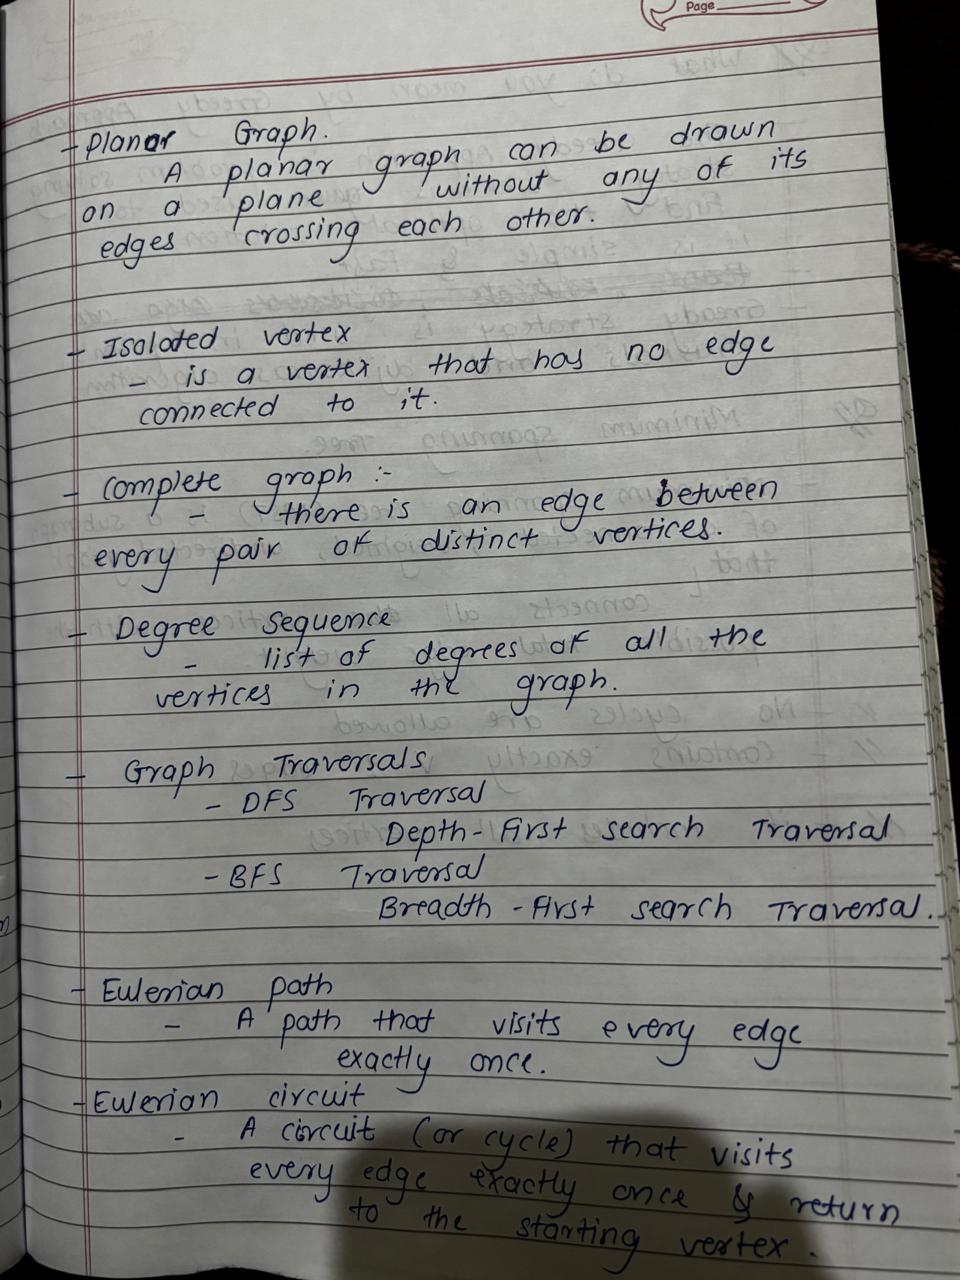 Page
- Planar Graph.
A planar graph can be drawn
on a plane without any of its
edges crossing each other.
- Isolated vertex
- is a vertex that has no edge
connected to it.
- Complete graph :-
- there is an edge between
every pair of distinct vertices.
- Degree Sequence
- list of degrees of all the
vertices in the graph.
- Graph Traversals
- DFS Traversal
Depth-First search Traversal
- BFS Traversal
Breadth-First search Traversal.
- Eulerian path
- A path that visits every edge
exactly once.
- Eulerian circuit
- A circuit (or cycle) that visits
every edge exactly once & return
to the starting vertex.